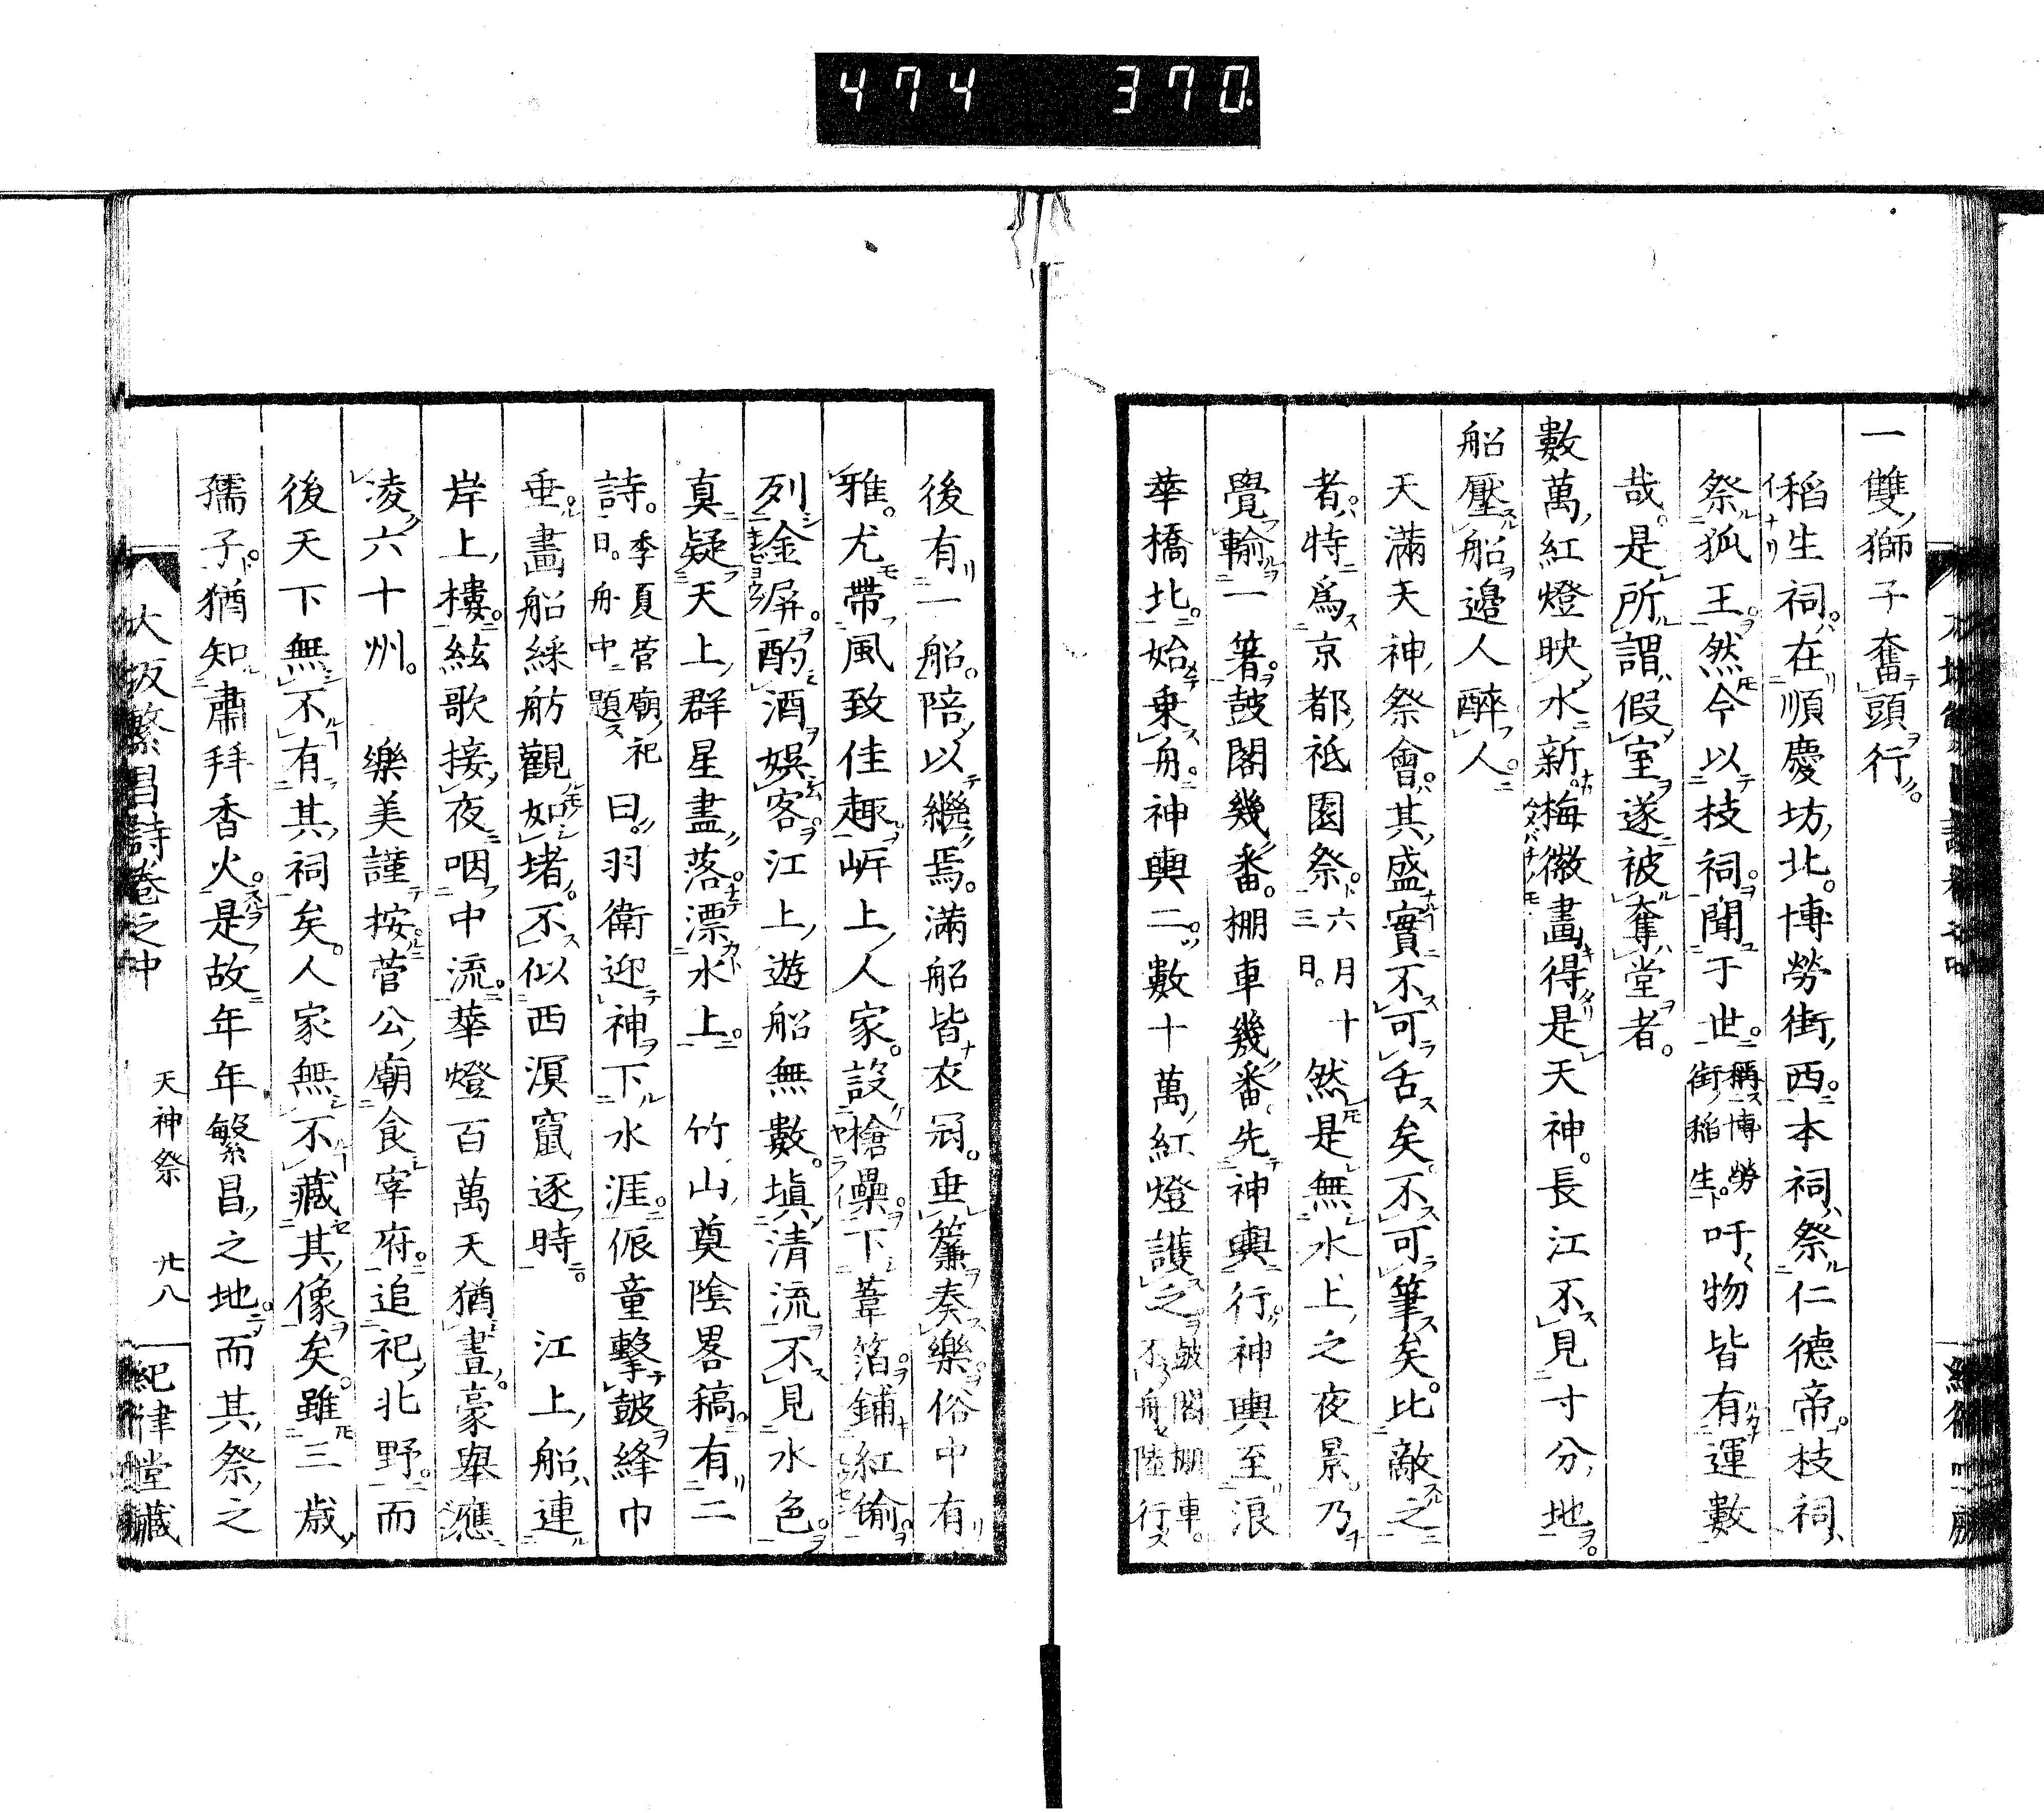 474 370
一雙獅子奮頭行
稻生祠在順慶坊北博勞街西本祠祭仁德帝枝祠
祭狐王然今以枝祠聞于世稱博勞街稻生吁物皆有運數
哉是所謂假室遂被奪堂者
數萬紅燈映水新梅徽畫得是天神長江不見寸分地
船壓船邉人醉人
天滿天神祭會其盛實不可舌矣不可筆矣比敵之
者特爲京都祇園祭六月十三日然是無水上之夜景乃
覺輸一箸皷閣幾番棚車幾番先神輿行神輿至浪
華橋北始乗舟神輿二數十萬紅燈護之皷閣棚車不舟陸行
後有一船陪以繼焉滿船皆衣冠垂簾奏樂俗中有
雅尤帶風致佳趣岸上人家設槍壘下葦箔鋪紅
列金屏酌酒娯客江上遊船無數塡清流不見水色
真疑天上群星盡落漂水上 竹山奠陰畧稿有二
詩季夏菅廟祀日舟中題曰羽衛迎神下水涯侲童擊皷絳巾
垂畫船綵舫觀如堵不似西溟竄逐時 江上船連
岸上樓絃歌接夜咽中流華燈百萬天猶晝豪舉應
凌六十州 樂美謹按菅公廟食宰府追祀北野而
後天下無不有其祠矣人家無不藏其像矣雖三歳
孺子猶知肅拜香火是故年年繁昌之地而其祭之
大坂繁昌詩卷之中 天神祭 廿八 紀律堂藏